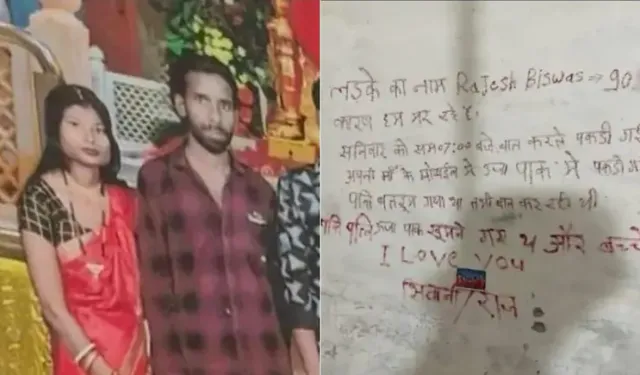 लड़के का नाम Rajesh Biswas → 90
कारण हम मर रहे हैं.
सनिवार को सम07:00 बजे बात करते पकड़ी गई
अपनी माँ के मोबाईल से ऊर्जा पार्क में पकड़ी
पति बतरुम गया था तभी बात कर रही थी
पति पत्नि ऊर्जा पार्क घुमने गए थे और बच्चे
I Love You
शिवानी/राज